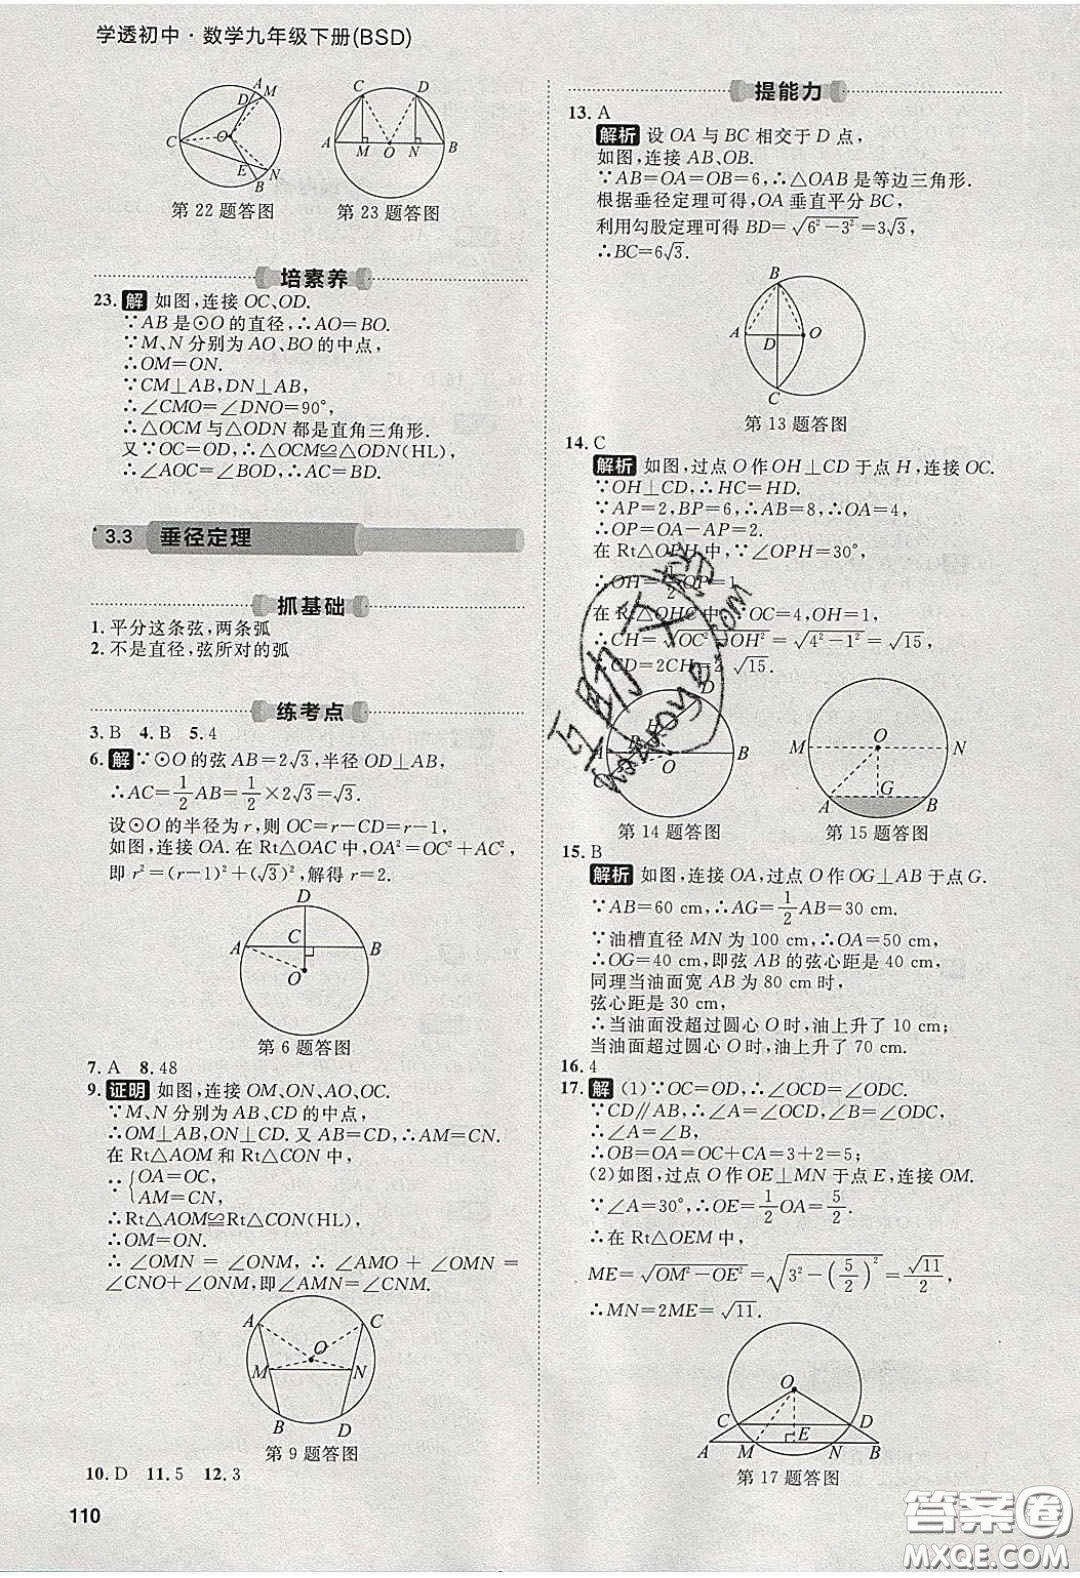 学透初中·数学九年级下册(BSD)
A
D
M
C
O
E
N
B
第22题答图
C
D
A
M
O
N
B
第23题答图
培素养
23. 解 如图,连接OC、OD.
∵AB是⊙O的直径,∴AO=BO.
∵M、N分别为AO、BO的中点,
∴OM=ON.
∵CM⊥AB,DN⊥AB,
∴∠CMO=∠DNO=90°,
∴△OCM与△ODN都是直角三角形.
又∵OC=OD,∴△OCM≌△ODN(HL),
∴∠AOC=∠BOD,∴AC=BD.
3.3 垂径定理
抓基础
1. 平分这条弦,两条弧
2. 不是直径,弦所对的弧
练考点
3. B 4. B 5. 4
6. 解 ∵⊙O的弦AB=2√3,半径OD⊥AB,
∴AC=1/2AB=1/2×2√3=√3.
设⊙O的半径为r,则OC=r-CD=r-1,
如图,连接OA.在Rt△OAC中,OA²=OC²+AC²,
即r²=(r-1)²+(√3)²,解得r=2.
D
C
A
B
O
第6题答图
7. A 8. 48
9. 证明 如图,连接OM、ON、AO、OC.
∵M、N分别为AB、CD的中点,
∴OM⊥AB,ON⊥CD.又AB=CD,∴AM=CN.
在Rt△AOM和Rt△CON中,
∵{OA=OC,
AM=CN,
∴Rt△AOM≌Rt△CON(HL),
∴OM=ON.
∴∠OMN=∠ONM,∴∠AMO+∠OMN=
∠CNO+∠ONM,即∠AMN=∠CNM.
A
C
O
M
N
B
D
第9题答图
10. D 11. 5 12. 3
110
提能力
13. A
解析 设OA与BC相交于D点,
如图,连接AB、OB.
∵AB=OA=OB=6,∴△OAB是等边三角形.
根据垂径定理可得,OA垂直平分BC,
利用勾股定理可得BD=√(6²-3²)=3√3,
∴BC=6√3.
B
A
D
O
C
第13题答图
14. C
解析 如图,过点O作OH⊥CD于点H,连接OC.
∵OH⊥CD,∴HC=HD.
∵AP=2,BP=6,∴AB=8,∴OA=4,
∴OP=OA-AP=2.
在Rt△OPH中,∵∠OPH=30°,
∴OH=1/2OP=1.
在Rt△OHC中,∵OC=4,OH=1,
∴CH=√(OC²-OH²)=√(4²-1²)=√15,
∴CD=2CH=2√15.
D
H
A
P
O
B
第14题答图
O
M
N
G
A
B
第15题答图
15. B
解析 如图,连接OA,过点O作OG⊥AB于点G.
∵AB=60 cm,∴AG=1/2AB=30 cm.
∵油槽直径MN为100 cm,∴OA=50 cm,
∴OG=40 cm,即弦AB的弦心距是40 cm,
同理当油面宽AB为80 cm时,
弦心距是30 cm,
∴当油面没超过圆心O时,油上升了10 cm;
当油面超过圆心O时,油上升了70 cm.
16. 4
17. 解 (1)∵OC=OD,∴∠OCD=∠ODC.
∵CD∥AB,∴∠A=∠OCD,∠B=∠ODC,
∴∠A=∠B,
∴OB=OA=OC+CA=3+2=5;
(2)如图,过点O作OE⊥MN于点E,连接OM.
∵∠A=30°,∴OE=1/2OA=5/2.
∴在Rt△OEM中,
ME=√(OM²-OE²)=√(3²-(5/2)²)=√11/2,
∴MN=2ME=√11.
O
C
D
A
M
E
N
B
第17题答图
答案圈
MXQE.COM